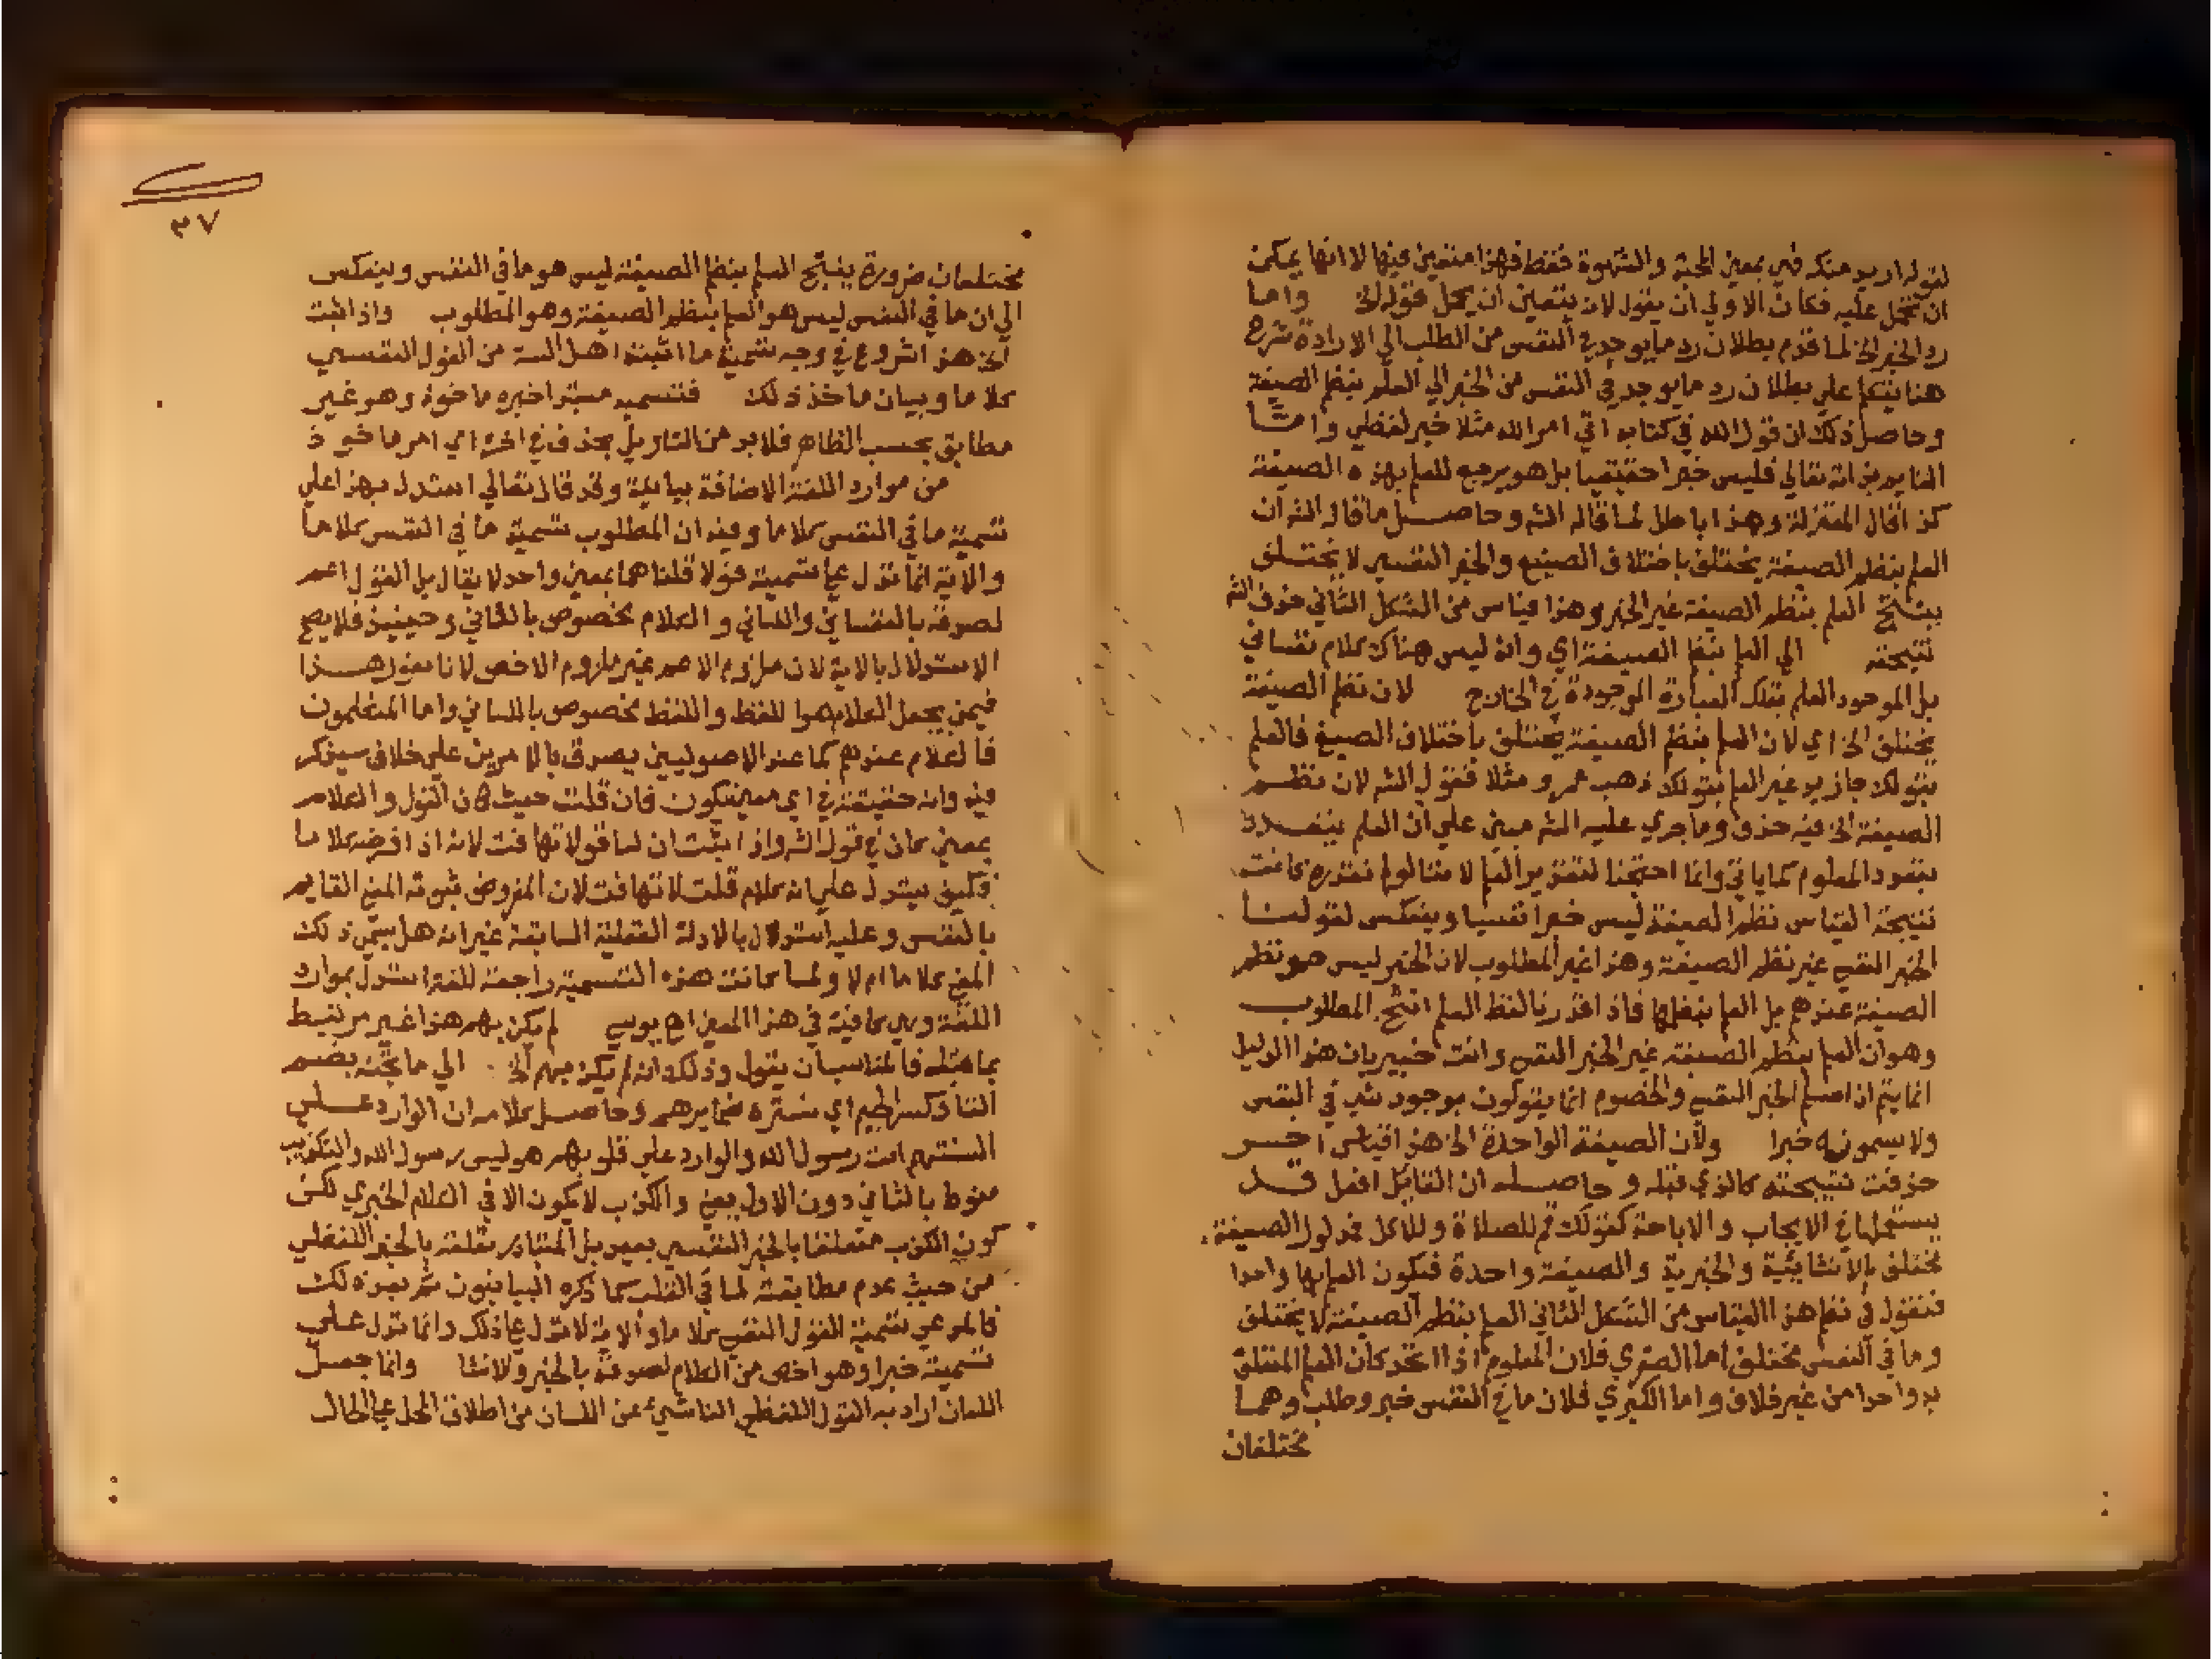 لقوله اريد منكر فهي بمعنى المحبة والشهوة فقط فهذا متعين فيها لا انها يمكن
ان تحمل عليه فكان الاولى ان يقول لان يتعين ان يحمل قوله الخ واما
رد الخبر الخ لما قدم بطلان رد ما يوجد في النفس من الطلب الي الارادة شرع
هنا يتكلم علي بطلان رد ما يوجد في النفس من الخبر الي العلم بنظم الصيغة
وحاصل ذلك ان قول الله في كتابه اتي امر الله مثلا خبر لفظي وامــا
القايم بذاته تعالي فليس خبرا حقيقيا بل هو يرجع للعلم بهذه الصيغة
كذا قال المعتزلة وهذا باطل لما قاله الشه وحاصــل ما قاله الشه ان
العلم بنظم الصيغة يختلف باختلاف الصيغ والخبر النفسي لا يختــلف
ينتــج العلم بنظم الصيغة غير الخبر وهذا قياس من الشكل الثاني حذف الشه
نتيجته الي العلم بنظم الصيغة اي وانه ليس هناك كلام نفساني
بل الموجود العلم بتلك العبارة الموجودة في الخارج لان نظم الصيغة
يختلف الخ اي لان العلم بنظم الصيغة يختلف باختلاف الصيغ فالعلم
بقولك جا زيد غير العلم بقولك ذهب عمرو مثلا فقول الشه لان نظــم
الصيغة الخ فيه حذف وما جري عليه الشه مبني علي ان العلم يتعــدد
بتعدد المعلوم كما ياتي وانما احتجنا لتقدير العلم لاننا لو لم نقدره كانت
نتيجة القياس نظم الصيغة ليس خبرا نفسيا وينعكس لقولنــا
الخبر النفسي غير نظم الصيغة وهذا غير المطلوب لان الخبر ليس هو نظم
الصيغة عندهم بل العلم بنظمها فاذا قدرنا لفظ العلم انتج المطلوب
وهو ان العلم بنظم الصيغة غير الخبر النفسي وانت خبير بان هذا الدليل
انما يتم اذا سلم الخبر النفسي والخصوم انما يقولون بوجود شي في النفس
ولا يسمونه خبرا ولان الصيغة الواحدة الخ هذا قياس اخــر
حذفت نتيجته كالذي قبله وحاصــله ان القائل افعل قــد
يستعملها في الايجاب والاباحة كقولك قم للصلاة وللاكل فمدلول الصيغة
يختلف بالانشائية والخبرية والصيغة واحدة فيكون العلم بها واحدا
فنقول في نظم هذا القياس من الشكل الثاني العلم بنظم الصيغة لا يختلف
وما في النفس مختلف اما الصغري فلان المعلوم اذا اتحد كان العلم المتعلق
به واحدا من غير خلاف واما الكبري فلان ما في النفس خبر وطلب وهمــا
مختلفان
٣٧
مختلفان ضرورة ينتج العلم بنظم الصيغة ليس هو ما في النفس وينعكس
الي ان ما في النفس ليس هو العلم بنظم الصيغة وهو المطلوب واذا ثبت
الخ هذا شروع في وجه تسمية ما اثبته اهل السنة من القول النفســي
كلاما وبيان ماخذ ذلك فتسميه مبتدا خبره ماخوذ وهو غير
مطابق بحسب الظاهر فلابد من التاويل بحذف في اخره اي امر ماخوذ
من موارد اللغة الاضافة بيانية وقد قال تعالي استدل بهذا علي
تسمية ما في النفس كلاما وفيه ان المطلوب تسمية ما في النفس كلاما
والاية انما تدل علي تسميته قولا قلنا هما بمعني واحد لا يقال بل القول اعم
لصدقه بالنفساني واللساني والكلام مخصوص بالثاني وحينئذ فلا يصح
الاستدلال بالاية لان ملزوم الاعم غير ملزوم الاخص لانا نقول هــذا
فيمن يجعل الكلام هو اللفظ واللفظ مخصوص باللساني واما المتكلمون
فالكلام عندهم كما عند الاصوليين يصدق بالامرين علي خلاف سيذكر
فيه وانه حقيقة في اي معني يكون فان قلت حيث كان القول والكلام
بمعني كان في قول الشه واذا ثبت ان لنا قولا تهافت لانه اذا فرضه كلاما
فكيف يستدل علي انه كلام قلت لا تهافت لان المفروض ثبوته المعني القايم
بالنفس وعليه استدلال بالادلة العقلية السابقة غير انه هل يسمي ذلك
المعني كلاما ام لا ولما كانت هذه التسمية راجعة للغة استدل بموارد
اللغة وهي كافية في هذا المعني اهـ يوسي لم يكن بهم هذا غير مرتبط
بما قبله فالمناسب ان يقول وذلك انه لم يكن بهم الخ الي ما تجنه بضم
التا وكسر الجيم اي تستره ضمايرهم وحاصــل كلامه ان الوارد علــي
السنتهم انت رسول الله والوارد علي قلوبهم هو ليس رسول الله والتكذيب
منوط بالثاني دون الاول يعني والكذب لا يكون الا في الكلام الخبري لكن
كون الكذب متعلقا بالخبر النفسي بعيد بل المتبادر تعلقه بالخبر اللفظي
من حيث عدم مطابقته لما في القلب كما ذكره البيانيون ثم بعد ذلك
فالمدعي تسمية القول النفسي كلاما والاية لا تدل علي ذلك وانما تدل علــي
تسميته خبرا وهو اخص من الكلام لصدقه بالخبر والانشا وانما جعــل
اللسان اراد به القول اللفظي الناشئ عن اللسان من اطلاق المحل علي الحال